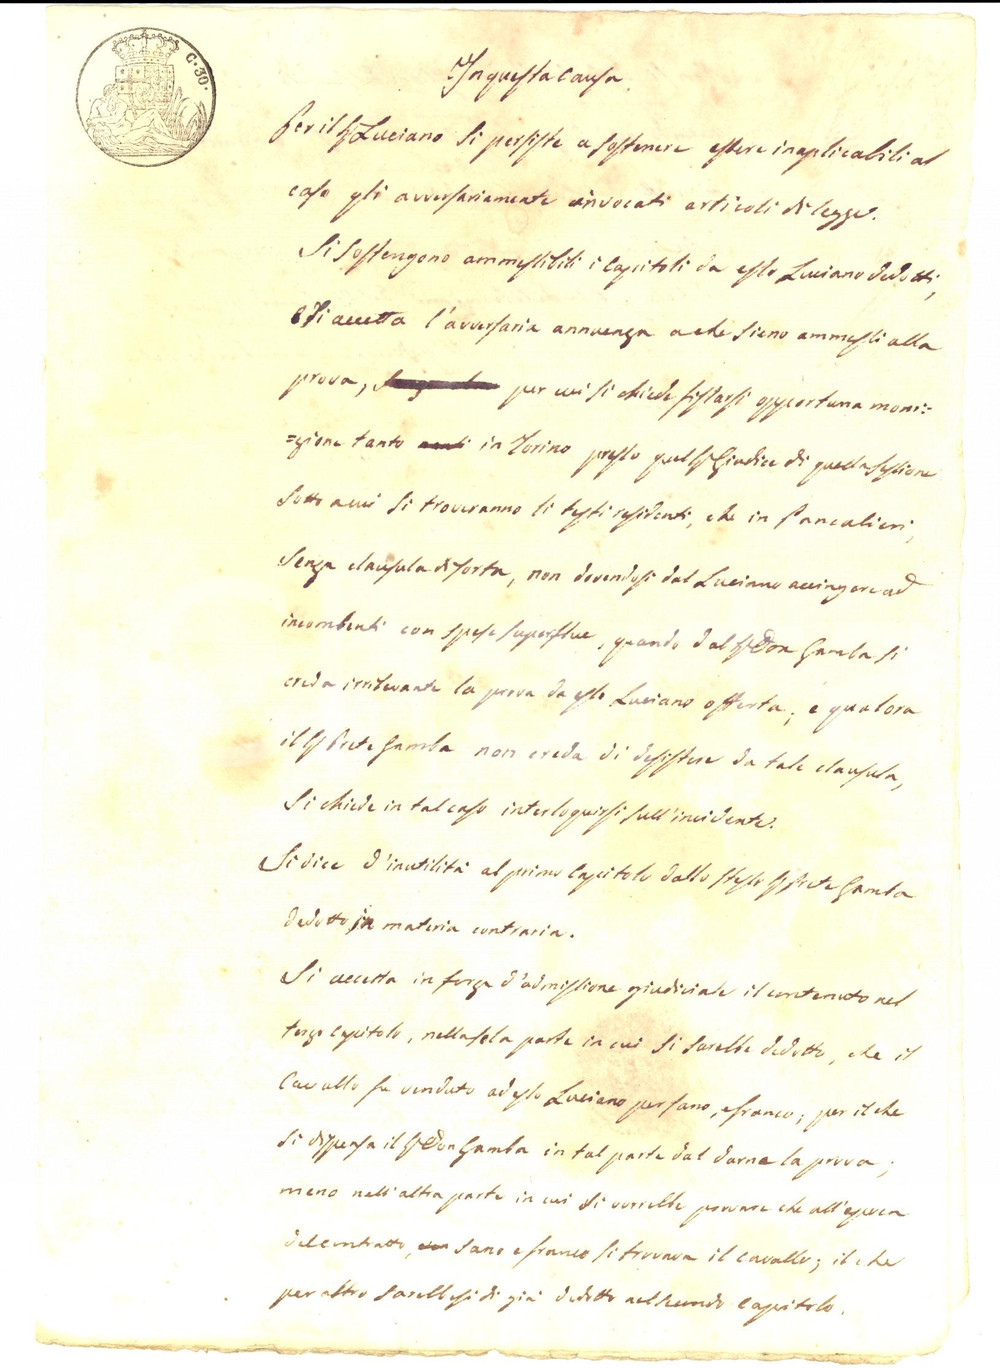 C. 30.
In questa causa.
Per il Sr Luciano si persiste a sostenere essere inaplicabili al
caso gli avversariamente invocati articoli di legge.
Si sostengono ammessibili i capitoli da esso Luciano dedotti,
e si accetta l'avversaria annuenza a che sieno ammessi alla
prova, per cui si chiede fissarsi opportuna moni=
=zione tanto in Torino presso quel Sr Giudice di quella sessione
sotto a cui si troveranno li testi residenti, che in Pancalieri,
senza clausula di sorta, non dovendosi dal Luciano accingere ad
incombenti con spese superflue, quando dal Sr Don Gamba si
creda irrilevante la prova da esso Luciano offerta; e qualora
il Sr Prete Gamba non creda di desistere da tale clausula,
si chiede in tal caso interloquirsi sull'incidente.
Si dice d'inutilità al primo Capitolo dallo stesso Sr Prete Gamba
dedotto in materia contraria.
Si accetta in forza d'admissione giudiciale il contenuto nel
terzo capitolo, nella sola parte in cui si sarebbe dedotto, che il
Cavallo fu venduto ad esso Luciano per sano, e franco; per il che
si dispensa il Sr Don Gamba in tal parte dal darne la prova;
meno nell'altra parte in cui si vorrebbe provare che all'epoca
del contratto, sano e franco si trovava il cavallo; il che
per altro sarebbesi di già dedotto nel secondo Capitolo.